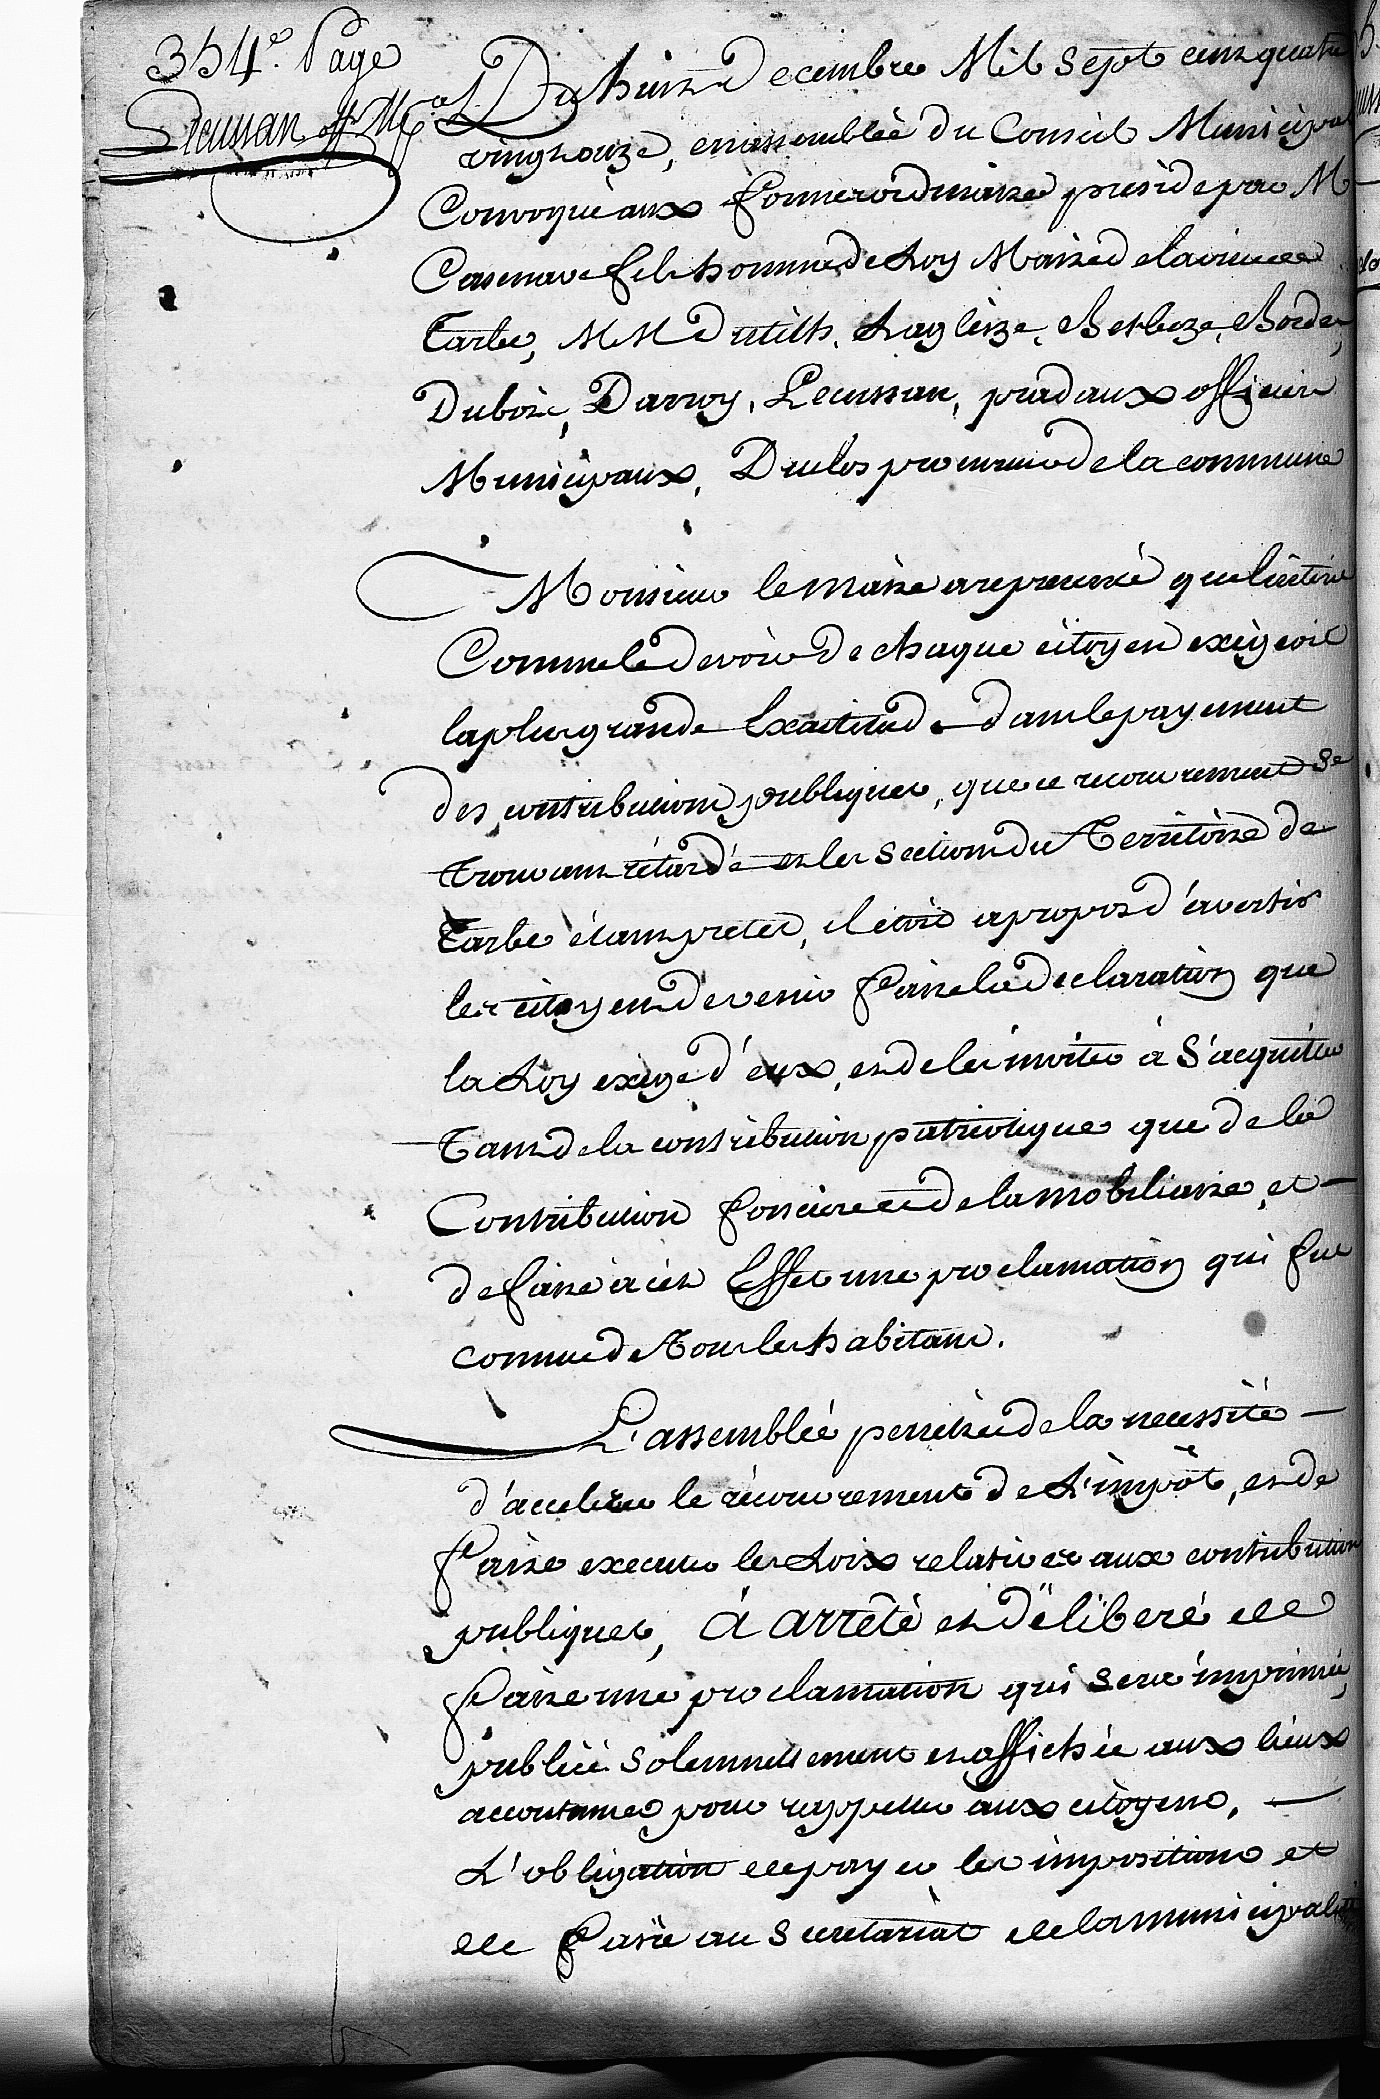 354.e Page
Lecussan off. M.al
Du huit Decembre Mil Sept cens quatre
vingt onze, en assemblée du Conseil Municipal
Convoqué aux formes ordinaires presidé par M
Casenave fils homme de Loy Maire de la ville de
Tarbe, MM Dutilh, Lagleize, Borde,
Dubois, Darroy, Lecussan, pradaux officiers
Municipaux, Duclos procureur de la commune
Monsieur le maire a representé que l'intérêt
Comme le devoir de chaque citoyen exigeoit
la plus grande Exactitude dans le payement
des contributions publiques, que ce recouvrement se
trouvant rétardé et les sections du Territoire de
Tarbe étant pretes, il étoit apropos d'avertir
les citoyens de venir faire la declaration que
la Loy exige d'eux, et de les inviter à S'acquitter
Tant de la contribution patriotique que de la
Contribution fonciere et de la mobiliaire, et
de faire à cet Effet une proclamation qui fut
connue de Tous les habitans.
L'assemblée penétrée de la necessité
d'accelerer le récouvrement de L'impôt, et de
faire executer les Loix relatives aux contributions
publiques, à arrêté et déliberé de
faire une proclamation qui sera imprimée,
publiée Solemnellement et affichée aux lieux
accoutumés pour rappeller aux citoyens,
L'obligation de payer les impositions et
de faire au Secretariat de la municipalité